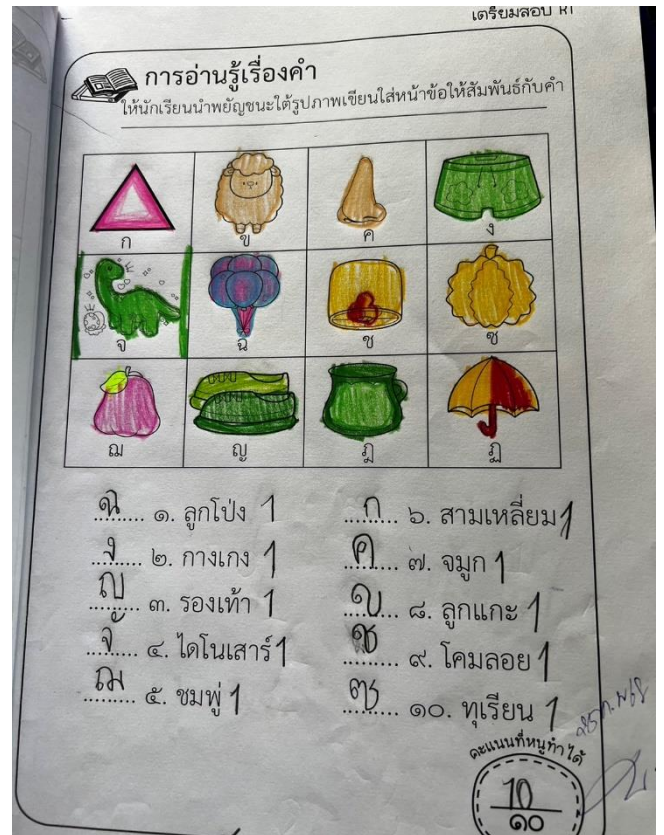 เตรียมสอบ RT
การอ่านรู้เรื่องคำ
ให้นักเรียนนำพยัญชนะใต้รูปภาพเขียนใส่หน้าข้อให้สัมพันธ์กับคำ
ก ข ค ง
จ ฉ ช ซ
ฌ ญ ฎ ฏ
ฉ ๑. ลูกโป่ง 1
ง ๒. กางเกง 1
ญ ๓. รองเท้า 1
จ ๔. ไดโนเสาร์ 1
ฌ ๕. ชมพู่ 1
ก ๖. สามเหลี่ยม 1
ค ๗. จมูก 1
ข ๘. ลูกแกะ 1
ช ๙. โคมลอย 1
ซ ๑๐. ทุเรียน 1
คะแนนที่หนูทำได้
10
๑๐